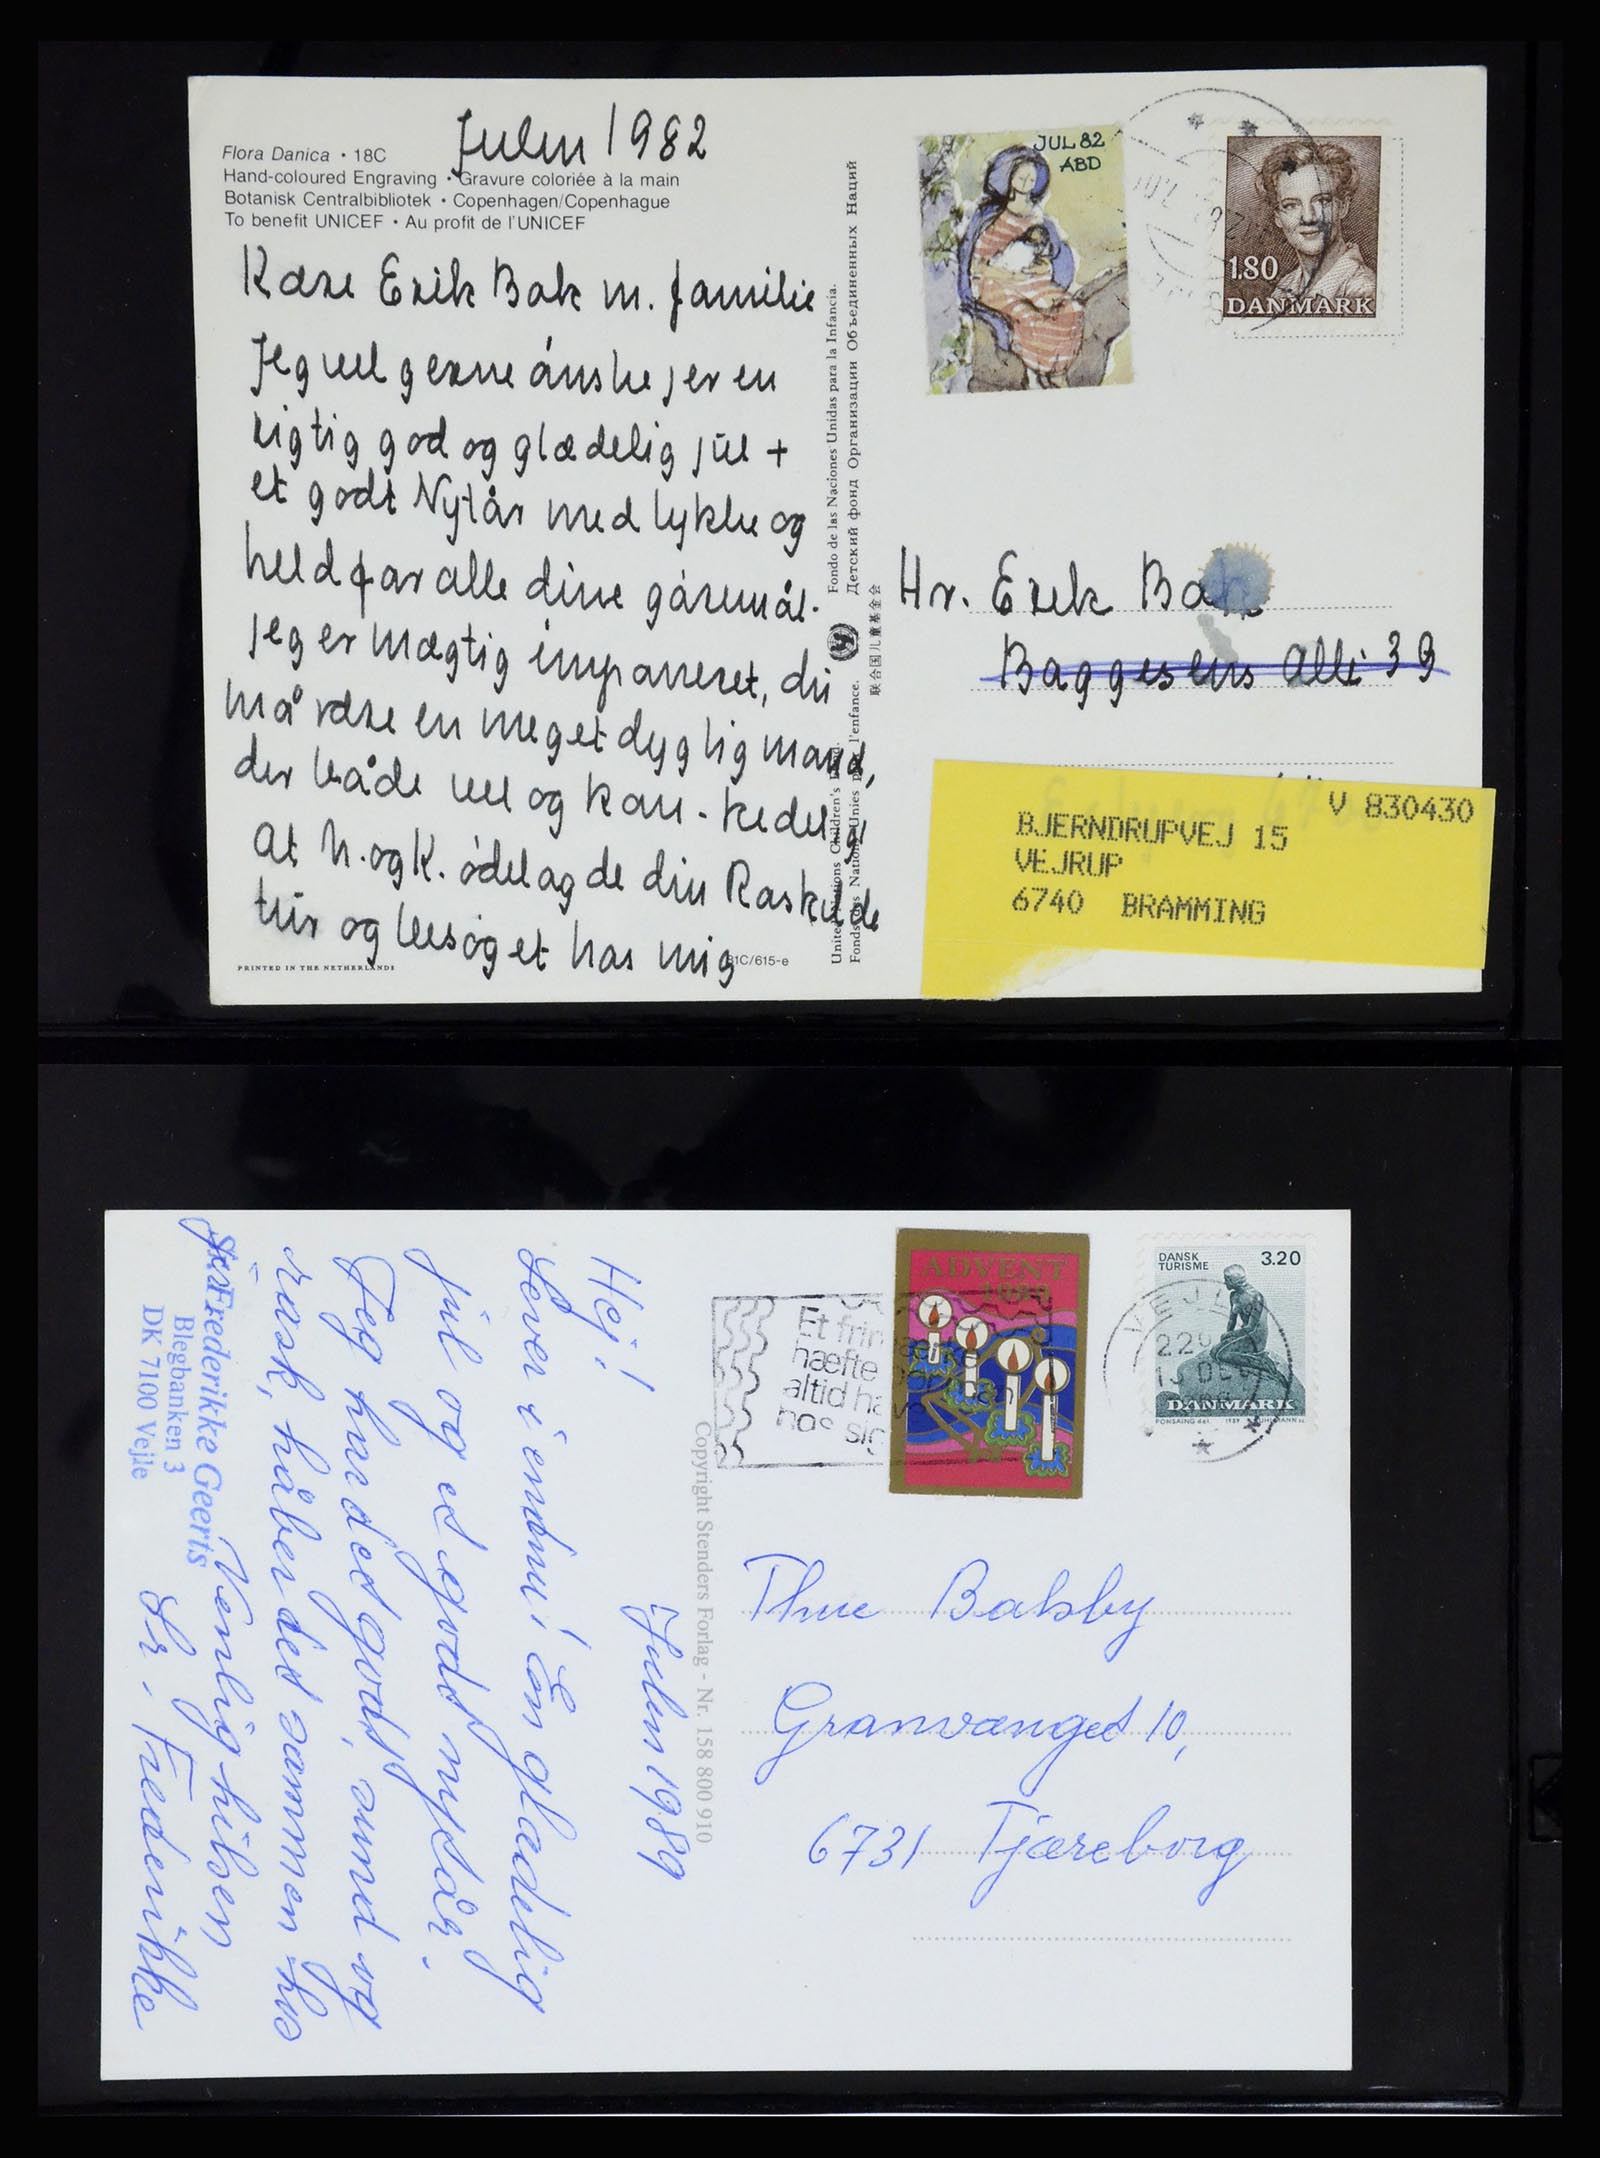 Flora Danica • 18C
Hand-coloured Engraving • Gravure coloriée à la main
Botanisk Centralbibliotek • Copenhagen/Copenhague
To benefit UNICEF • Au profit de l'UNICEF
Julen 1982
Kære Erik Bak m. familie
Jeg vil gerne ønske jer en
rigtig god og glædelig jul +
et godt Nytår med lykke og
held for alle dine gøremål.
Jeg er mægtig imponeret, du
må være en meget dygtig mand,
der både vil og kan. - kedeligt
at h. og K. ødelagde din Roskilde
tur og besøget hos mig
PRINTED IN THE NETHERLANDS
81C/615-e
Fondo de las Naciones Unidas para la Infancia.
Детский фонд Организации Объединенных Наций
联合国儿童基金会
United Nations Children's
Fonds des Nations Unies pour l'enfance.
JUL 82
ABD
1.80
DANMARK
Hr. Erik Bak
Baggesens Alle 39
V 830430
BJERNDRUPVEJ 15
VEJRUP
6740 BRAMMING
Hej!
Julen 1989
Lever i endnu! En glædelig
jul og et godt nytår.
Jeg har det godt, sund og
rask, håber det sammen hos
Venlig hilsen
Sr. Frederikke
Frederikke Geerts
Blegbanken 3
DK 7100 Vejle
Copyright Stenders Forlag - Nr. 158 800 910
Et frim
hæfte
altid ha
hos sig
ADVENT
1989
DANSK
TURISME
3.20
DANMARK
VEJLE
Thue Baksby
Granvænget 10,
6731 Tjæreborg